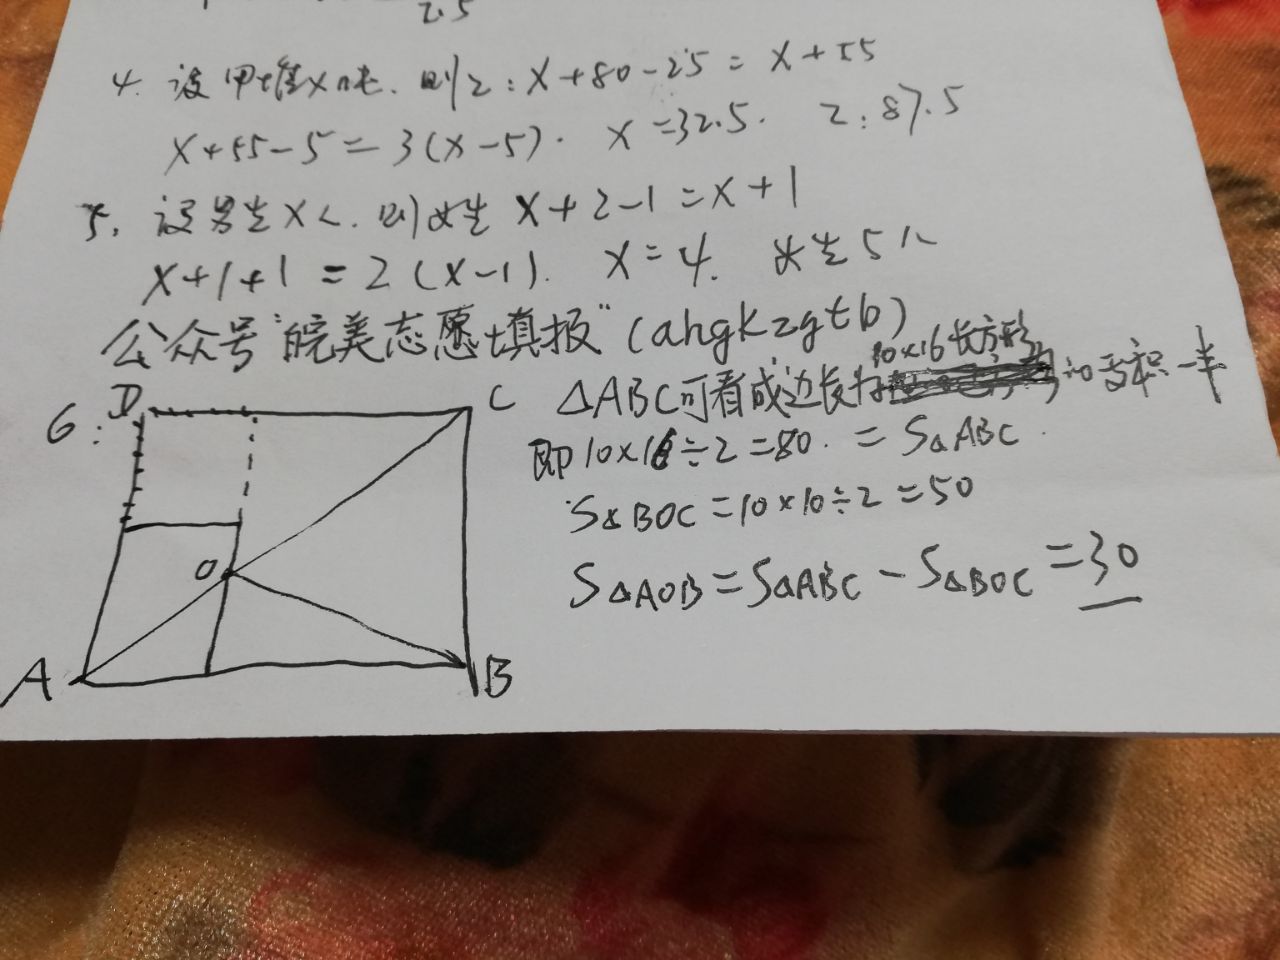 2.5
4. 设甲堆x吨. 则乙: x+80-25=x+55
x+55-5=3(x-5). x=32.5. 乙:87.5
5. 设男生x人. 则女生 x+2-1=x+1
x+1+1=2(x-1). x=4. 女生5人
公众号"皖美志愿填报"(ahgkzgtb)
6: D C △ABC可看成边长为10×16长方形的面积一半
即10×16÷2=80. =S△ABC.
S△BOC=10×10÷2=50
O S△AOB=S△ABC-S△BOC=30
A B